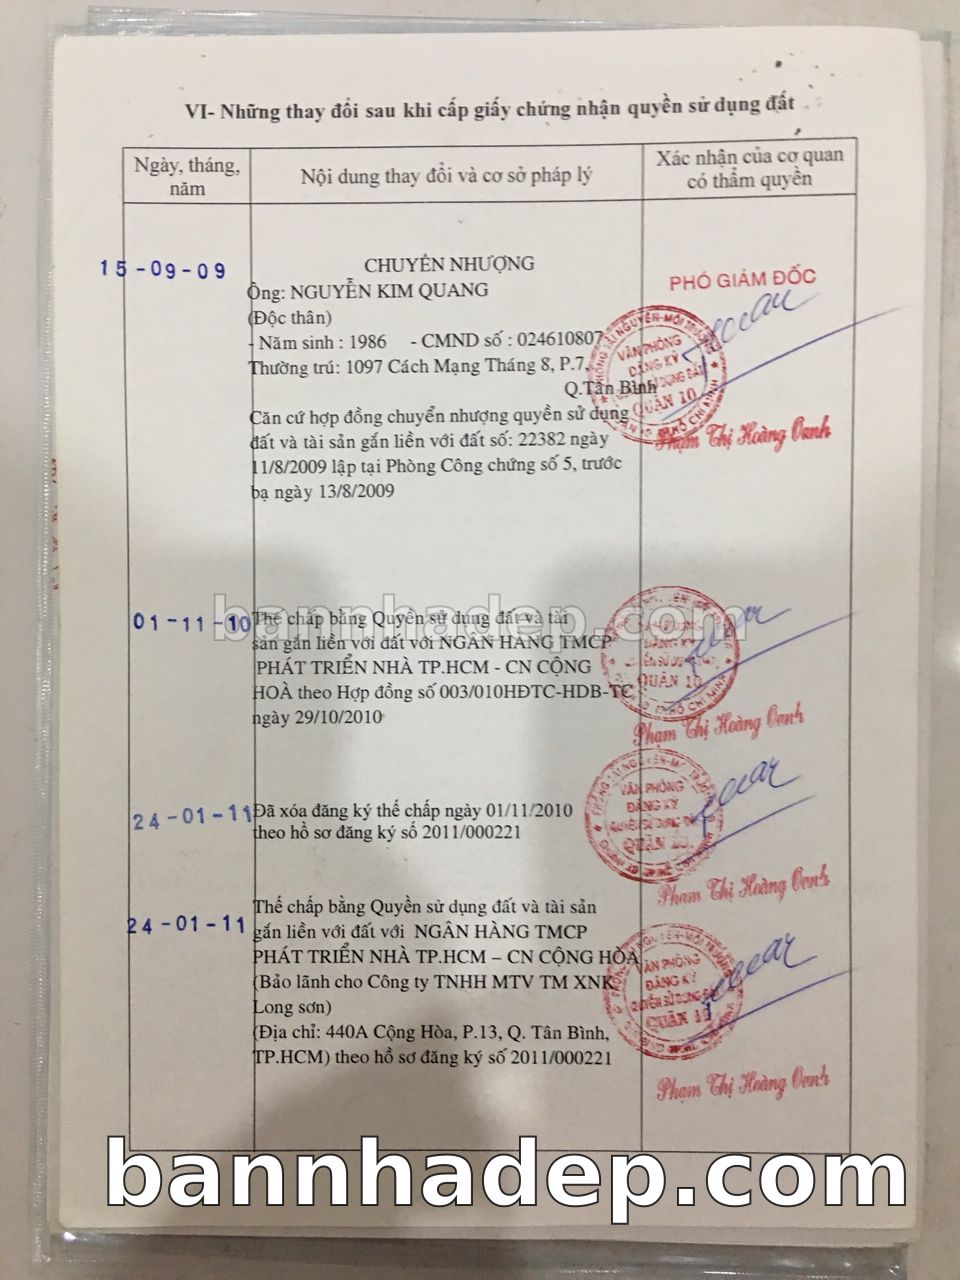 VI- Những thay đổi sau khi cấp giấy chứng nhận quyền sử dụng đất
Ngày, tháng,
năm
Nội dung thay đổi và cơ sở pháp lý
Xác nhận của cơ quan
có thẩm quyền
15-09-09
CHUYÊN NHƯỢNG
Ông: NGUYỄN KIM QUANG
(Độc thân)
- Năm sinh : 1986 - CMND số : 024610807
Thường trú: 1097 Cách Mạng Tháng 8, P.7,
Q.Tân Bình
Căn cứ hợp đồng chuyển nhượng quyền sử dụng
đất và tài sản gắn liền với đất số: 22382 ngày
11/8/2009 lập tại Phòng Công chứng số 5, trước
bạ ngày 13/8/2009
PHÓ GIÁM ĐỐC
VĂN PHÒNG
ĐĂNG KÝ
SỬ DỤNG ĐẤT
QUẬN 10
Phạm Thị Hoàng Oanh
01-11-10
Thế chấp bằng Quyền sử dụng đất và tài
sản gắn liền với đất với NGÂN HÀNG TMCP
PHÁT TRIỂN NHÀ TP.HCM - CN CỘNG
HOÀ theo Hợp đồng số 003/010HĐTC-HDB-TC
ngày 29/10/2010
bannhadep.com
ĐĂNG KÝ
QUẬN 10
Phạm Thị Hoàng Oanh
24-01-11
Đã xóa đăng ký thế chấp ngày 01/11/2010
theo hồ sơ đăng ký số 2011/000221
VĂN PHÒNG
ĐĂNG KÝ
QUYỀN SỬ DỤNG ĐẤT
QUẬN 10
Phạm Thị Hoàng Oanh
24-01-11
Thế chấp bằng Quyền sử dụng đất và tài sản
gắn liền với đất với NGÂN HÀNG TMCP
PHÁT TRIỂN NHÀ TP.HCM – CN CỘNG HÒA
(Bảo lãnh cho Công ty TNHH MTV TM XNK
Long sơn)
(Địa chỉ: 440A Cộng Hòa, P.13, Q. Tân Bình,
TP.HCM) theo hồ sơ đăng ký số 2011/000221
VĂN PHÒNG
ĐĂNG KÝ
QUYỀN SỬ DỤNG ĐẤT
QUẬN 10
Phạm Thị Hoàng Oanh
bannhadep.com